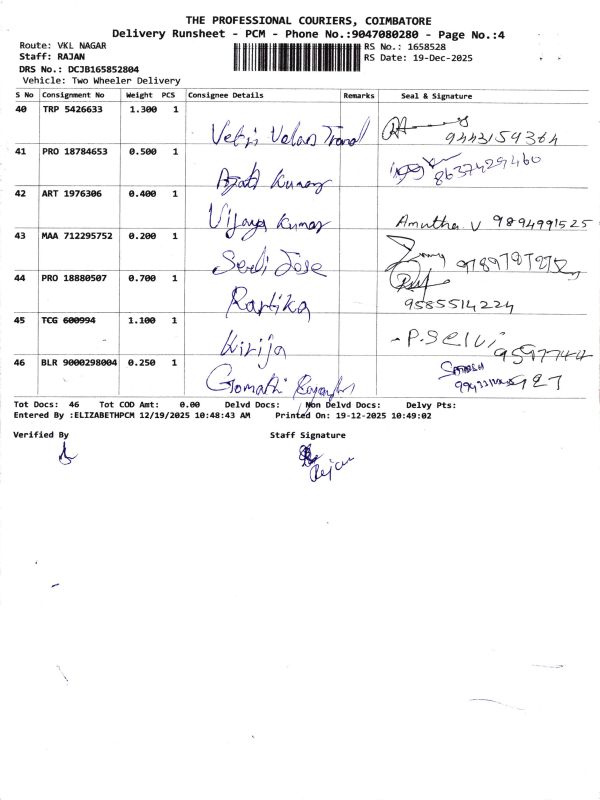 THE PROFESSIONAL COURIERS, COIMBATORE
Delivery Runsheet - PCM - Phone No.:9047080280 - Page No.:4
Route: VKL NAGAR
RS No.: 1658528
Staff: RAJAN
RS Date: 19-Dec-2025
DRS No.: DCJB165852804
Vehicle: Two Wheeler Delivery
S No Consignment No Weight PCS Consignee Details Remarks Seal & Signature
40 TRP 5426633 1.300 1
Vetri Velan 9443159364
41 PRO 18784653 0.500 1
Kumar 8637429460
42 ART 1976306 0.400 1
Vijaya Kumar Amutha V 9894991525
43 MAA 712295752 0.200 1
Jose
44 PRO 18880507 0.700 1
Kartika 9585514224
45 TCG 600994 1.100 1
Kirija P.Selvi
46 BLR 9000298004 0.250 1
Gomathi
Tot Docs: 46 Tot COD Amt: 0.00 Delvd Docs: Non Delvd Docs: Delvy Pts:
Entered By :ELIZABETHPCM 12/19/2025 10:48:43 AM Printed On: 19-12-2025 10:49:02
Verified By Staff Signature
Rajan